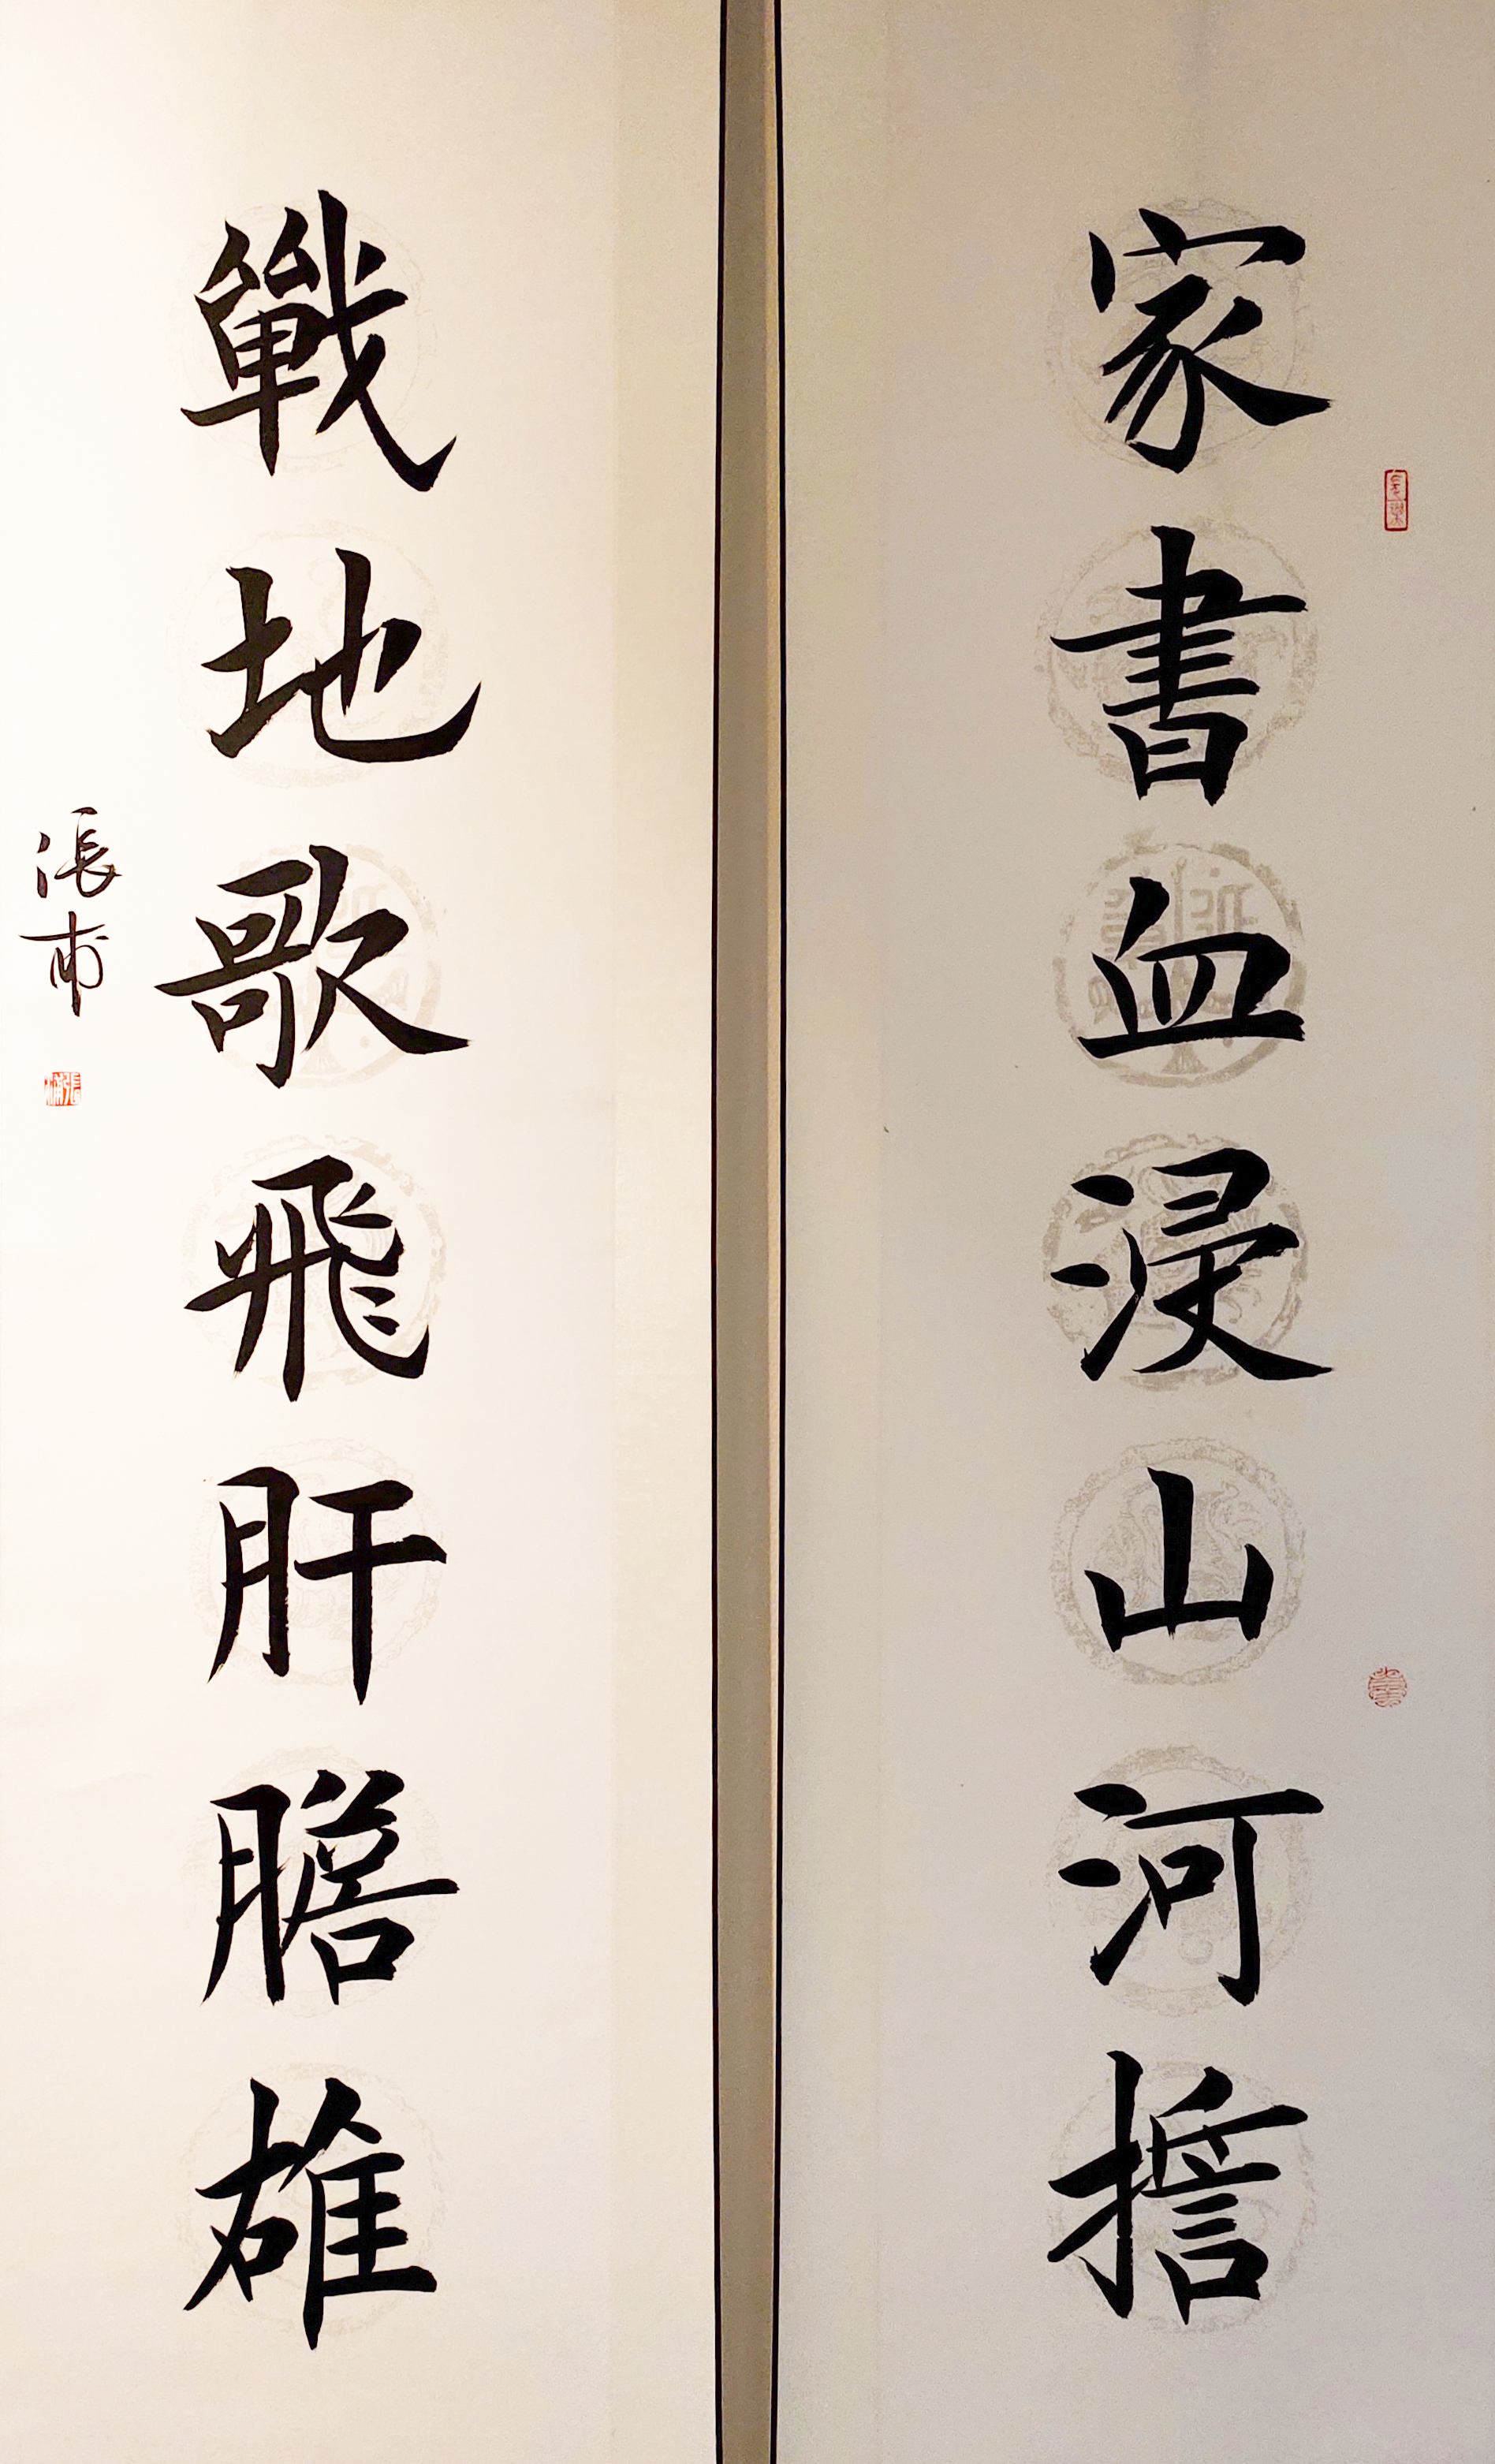 家書血浸山河擔
戰地歌飛肝膽雄
張甫